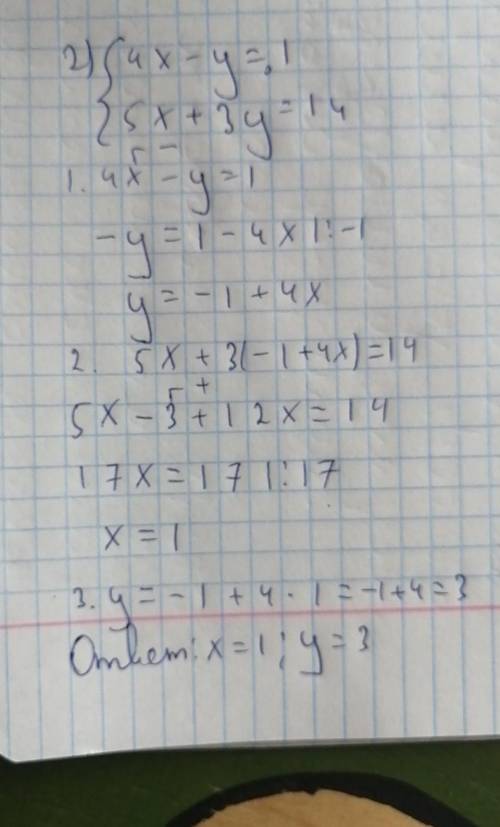 2) { 4x - y = 1
5x + 3y = 14
1. 4x - y = 1
-y = 1 - 4x |:-1
y = -1 + 4x
2. 5x + 3(-1+4x) = 14
5x - 3 + 12x = 14
17x = 17 |:17
x = 1
3. y = -1 + 4 · 1 = -1+4 = 3
Ответ: x = 1; y = 3